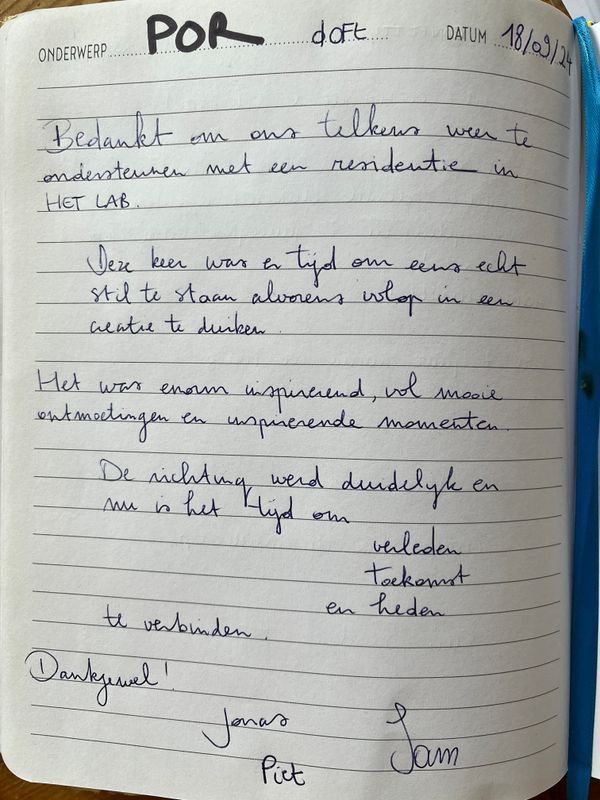 ONDERWERP POR doft DATUM 18/09/24
Bedankt om ons telkens weer te
ondersteunen met een residentie in
HET LAB.
Deze keer was er tijd om eens echt
stil te staan alvorens volop in een
creatie te duiken.
Het was enorm inspirerend, vol mooie
ontmoetingen en inspirerende momenten.
De richting werd duidelijk en
nu is het tijd om
verleden
toekomst
en heden
te verbinden.
Dankjewel!
Jonas
Sam
Piet